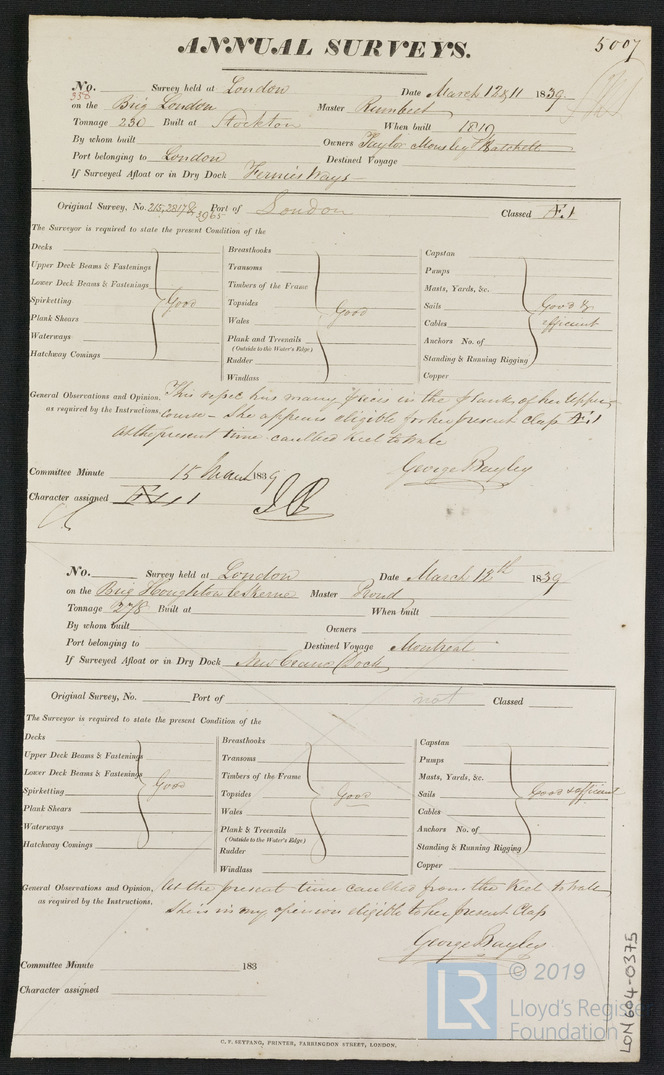 ANNUAL SURVEYS.
5007
No. 358 Survey held at London Date March 12 & 11 1839
on the Brig London Master
Tonnage 230 Built at Stockton When built 1819
By whom built Owners Taylor
Port belonging to London Destined Voyage
If Surveyed Afloat or in Dry Dock Fernies Ways
Original Survey, No. 215, 2817 & 3965 Port of London Classed Æ1
The Surveyor is required to state the present Condition of the
Decks
Upper Deck Beams & Fastenings
Lower Deck Beams & Fastenings
Spirketting Good
Plank Shears
Waterways
Hatchway Comings
Breasthooks
Transoms
Timbers of the Frame
Topsides Good
Wales
Plank and Treenails
(Outside to the Water's Edge)
Rudder
Windlass
Capstan
Pumps
Masts, Yards, &c.
Sails Good &
Cables efficient
Anchors No. of
Standing & Running Rigging
Copper
General Observations and Opinion, This vessel has many pieces in the planks of her upper
as required by the Instructions. course - She appears eligible for her present class Æ1
At the present time caulked keel to wale
George Bayley
Committee Minute 15 March 1839
Character assigned Æ 1
No. Survey held at London Date March 12th 1839
on the Brig Houghton le Skerne Master Proud
Tonnage 278 Built at When built
By whom built Owners
Port belonging to Destined Voyage Montreal
If Surveyed Afloat or in Dry Dock New Crane Dock
Original Survey, No. Port of not Classed
The Surveyor is required to state the present Condition of the
Decks
Upper Deck Beams & Fastenings
Lower Deck Beams & Fastenings
Spirketting Good
Plank Shears
Waterways
Hatchway Comings
Breasthooks
Transoms
Timbers of the Frame
Topsides Good
Wales
Plank & Treenails
(Outside to the Water's Edge)
Rudder
Windlass
Capstan
Pumps
Masts, Yards, &c.
Sails Good & efficient
Cables
Anchors No. of
Standing & Running Rigging
Copper
General Observations and Opinion, At the present time caulked from the keel to wale
as required by the Instructions. She is in my opinion eligible to her present Class
George Bayley
Committee Minute 183
Character assigned
C. F. SEYFANG, PRINTER, FARRINGDON STREET, LONDON.
LON604-0375
LR © 2019
Lloyd's Register
Foundation